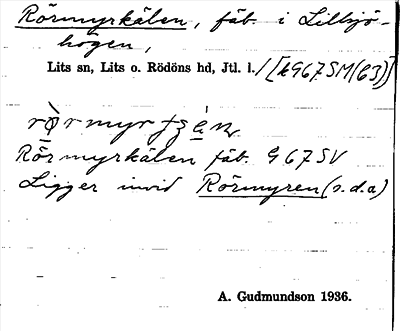 Rörmyrkälen, fäb. i Lillsjö-
högen,
Lits sn, Lits o. Rödöns hd, Jtl. l. / [k G67SM(63)]
Rörmyrkälen fäb. G 67 SV
Ligger invid Rörmyren (s.d.a)
A. Gudmundson 1936.